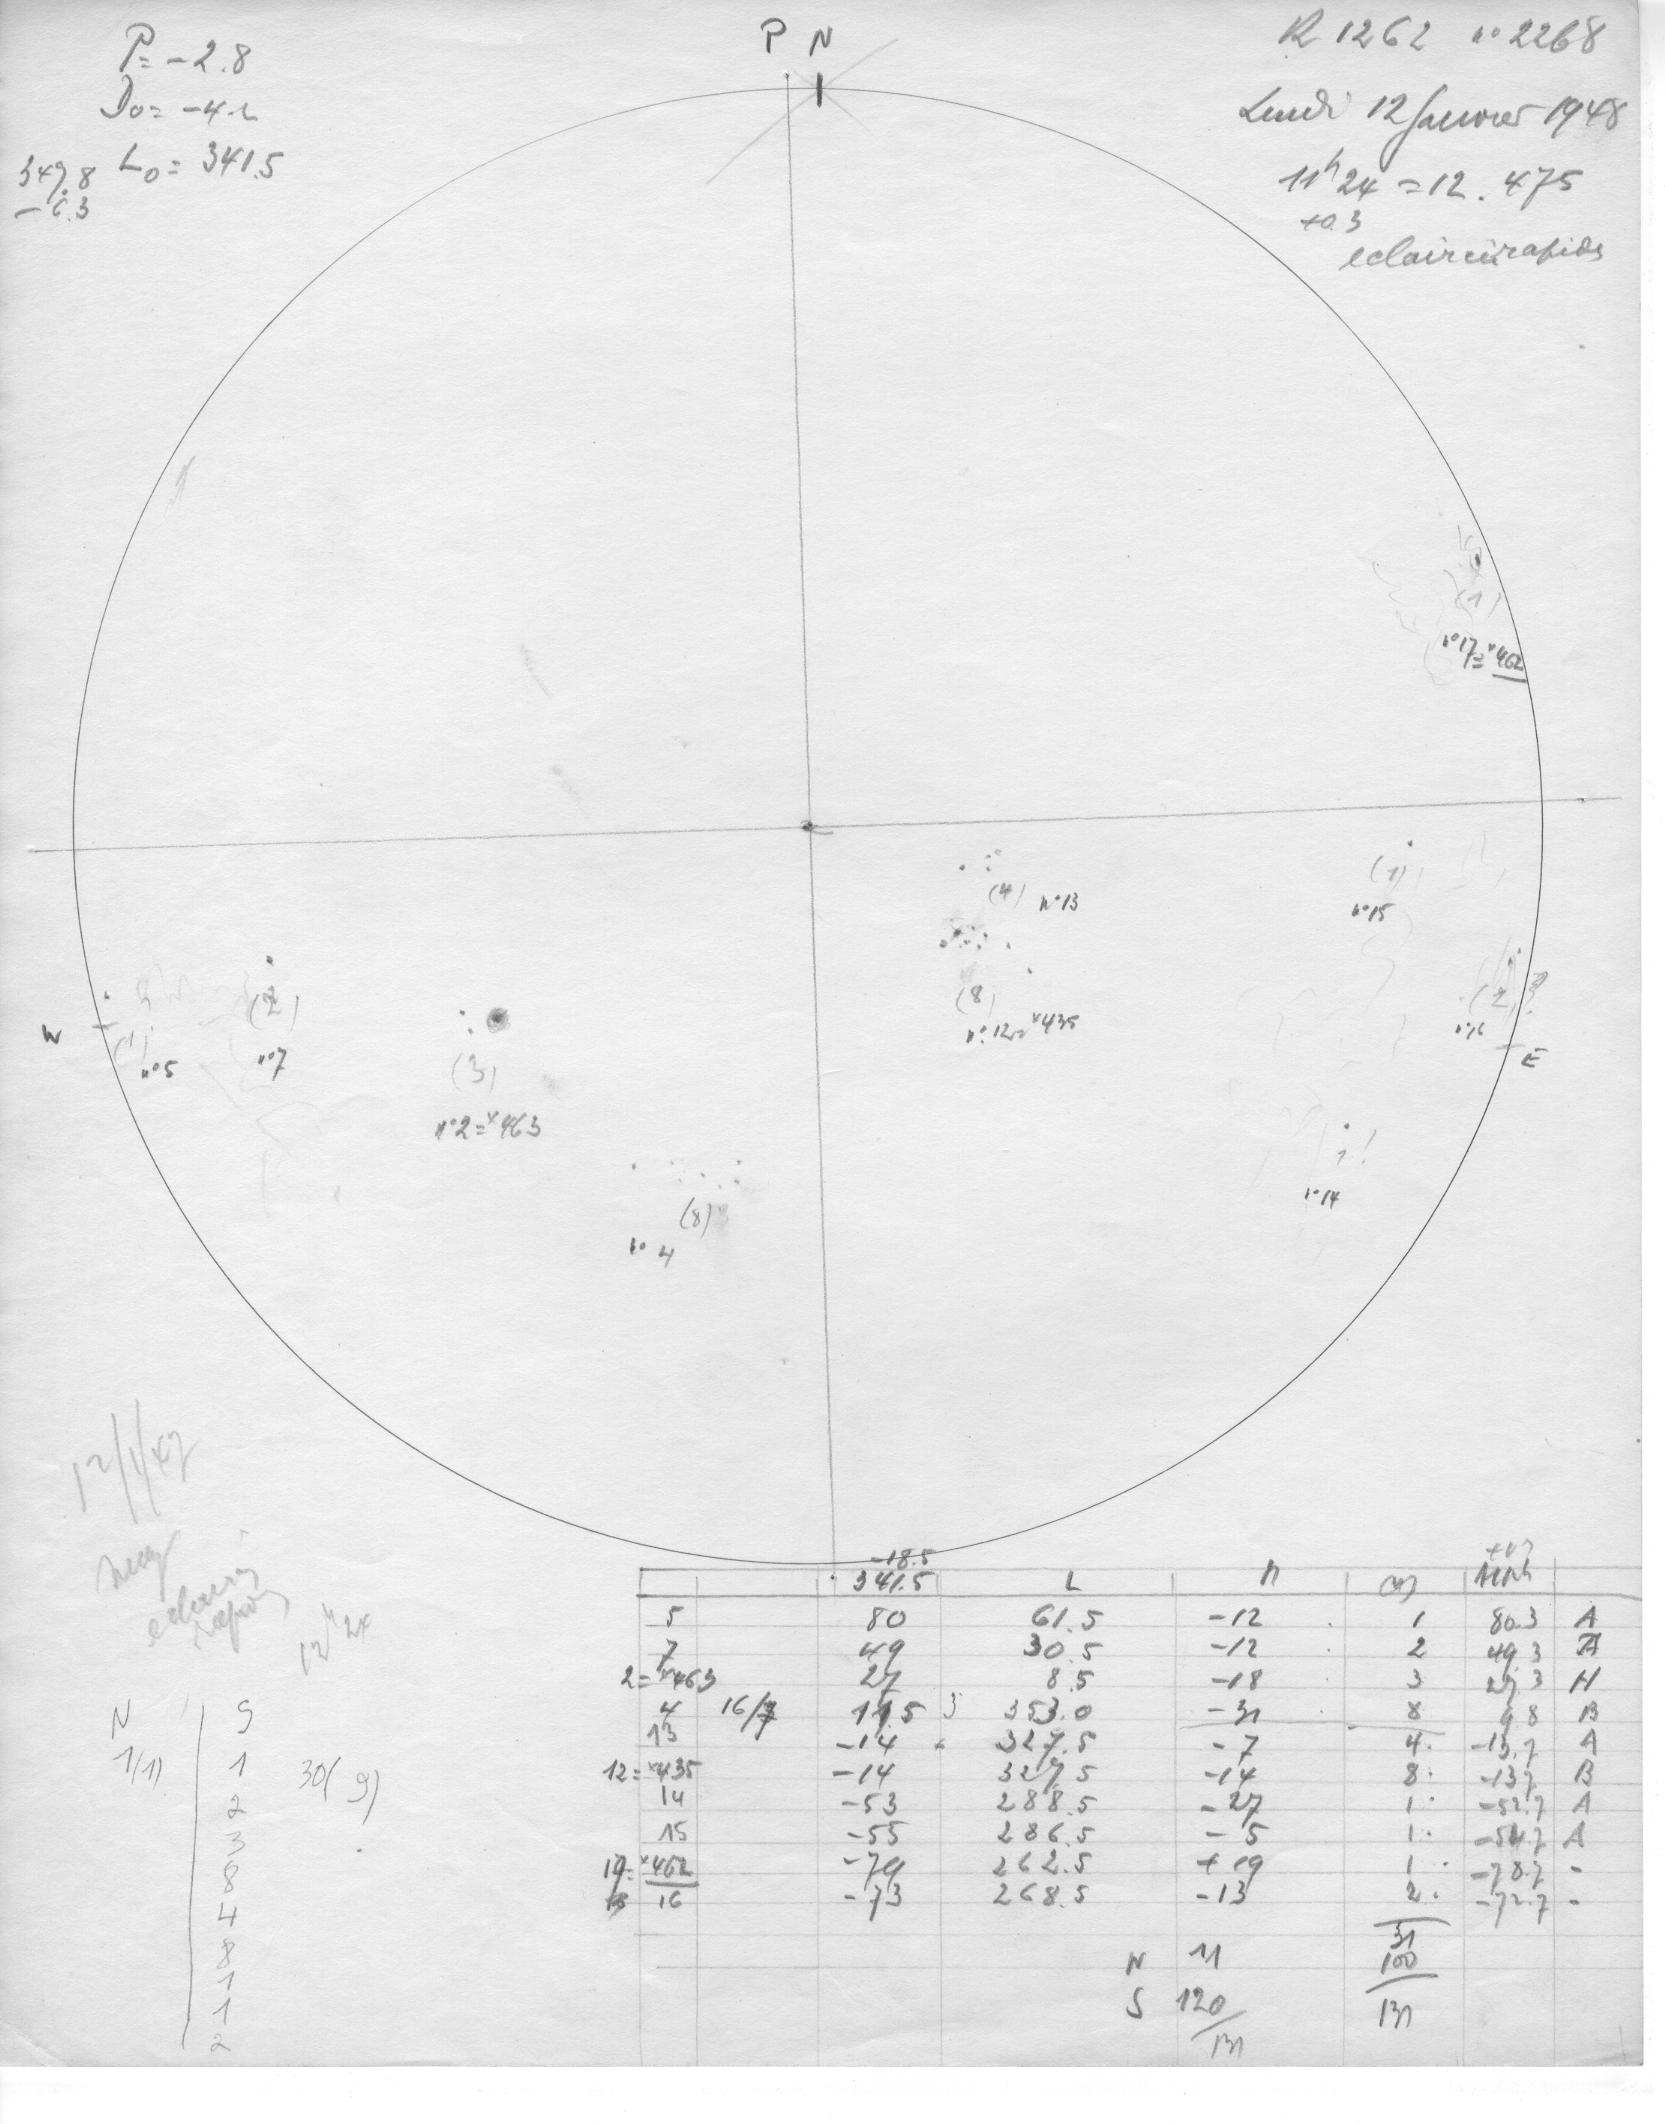 P = -2.8
Do = -4.2
Lo = 341.5
349.8
-6.3
P N
R 1262 n° 2268
Lundi 12 Janvier 1948
11h24 = 12.475
+0.3
eclaircie rapide
(1)
n°17=*462
(4) n°13
(1)
n°15
(8)
n°12=*435
(2)
n°16
E
W
(1)
n°5
(2)
n°7
(3)
n°2=*463
1
n°14
(8)
n° 4
12/1/47
eclaircie
12h24
N S
1(1) 1 30(9)
2
3
8
4
8
1
1
2
-18.5
341.5 L
5 80 61.5 -12 1 80.3 A
7 49 30.5 -12 2 49.3 A
2=*463 27 8.5 -18 3 27.3 H
4 16/7 11.5 353.0 -31 8 B
13 -14 327.5 -7 4 -13.7 A
12=*435 -14 327.5 -14 8 -13.7 B
14 -53 288.5 -27 1 -52.7 A
15 -55 286.5 -5 1 -54.7 A
17=*462 -79 262.5 +19 1 -78.7 -
16 -73 268.5 -13 2 -72.7 -
31
N 11 100
S 120 131
131